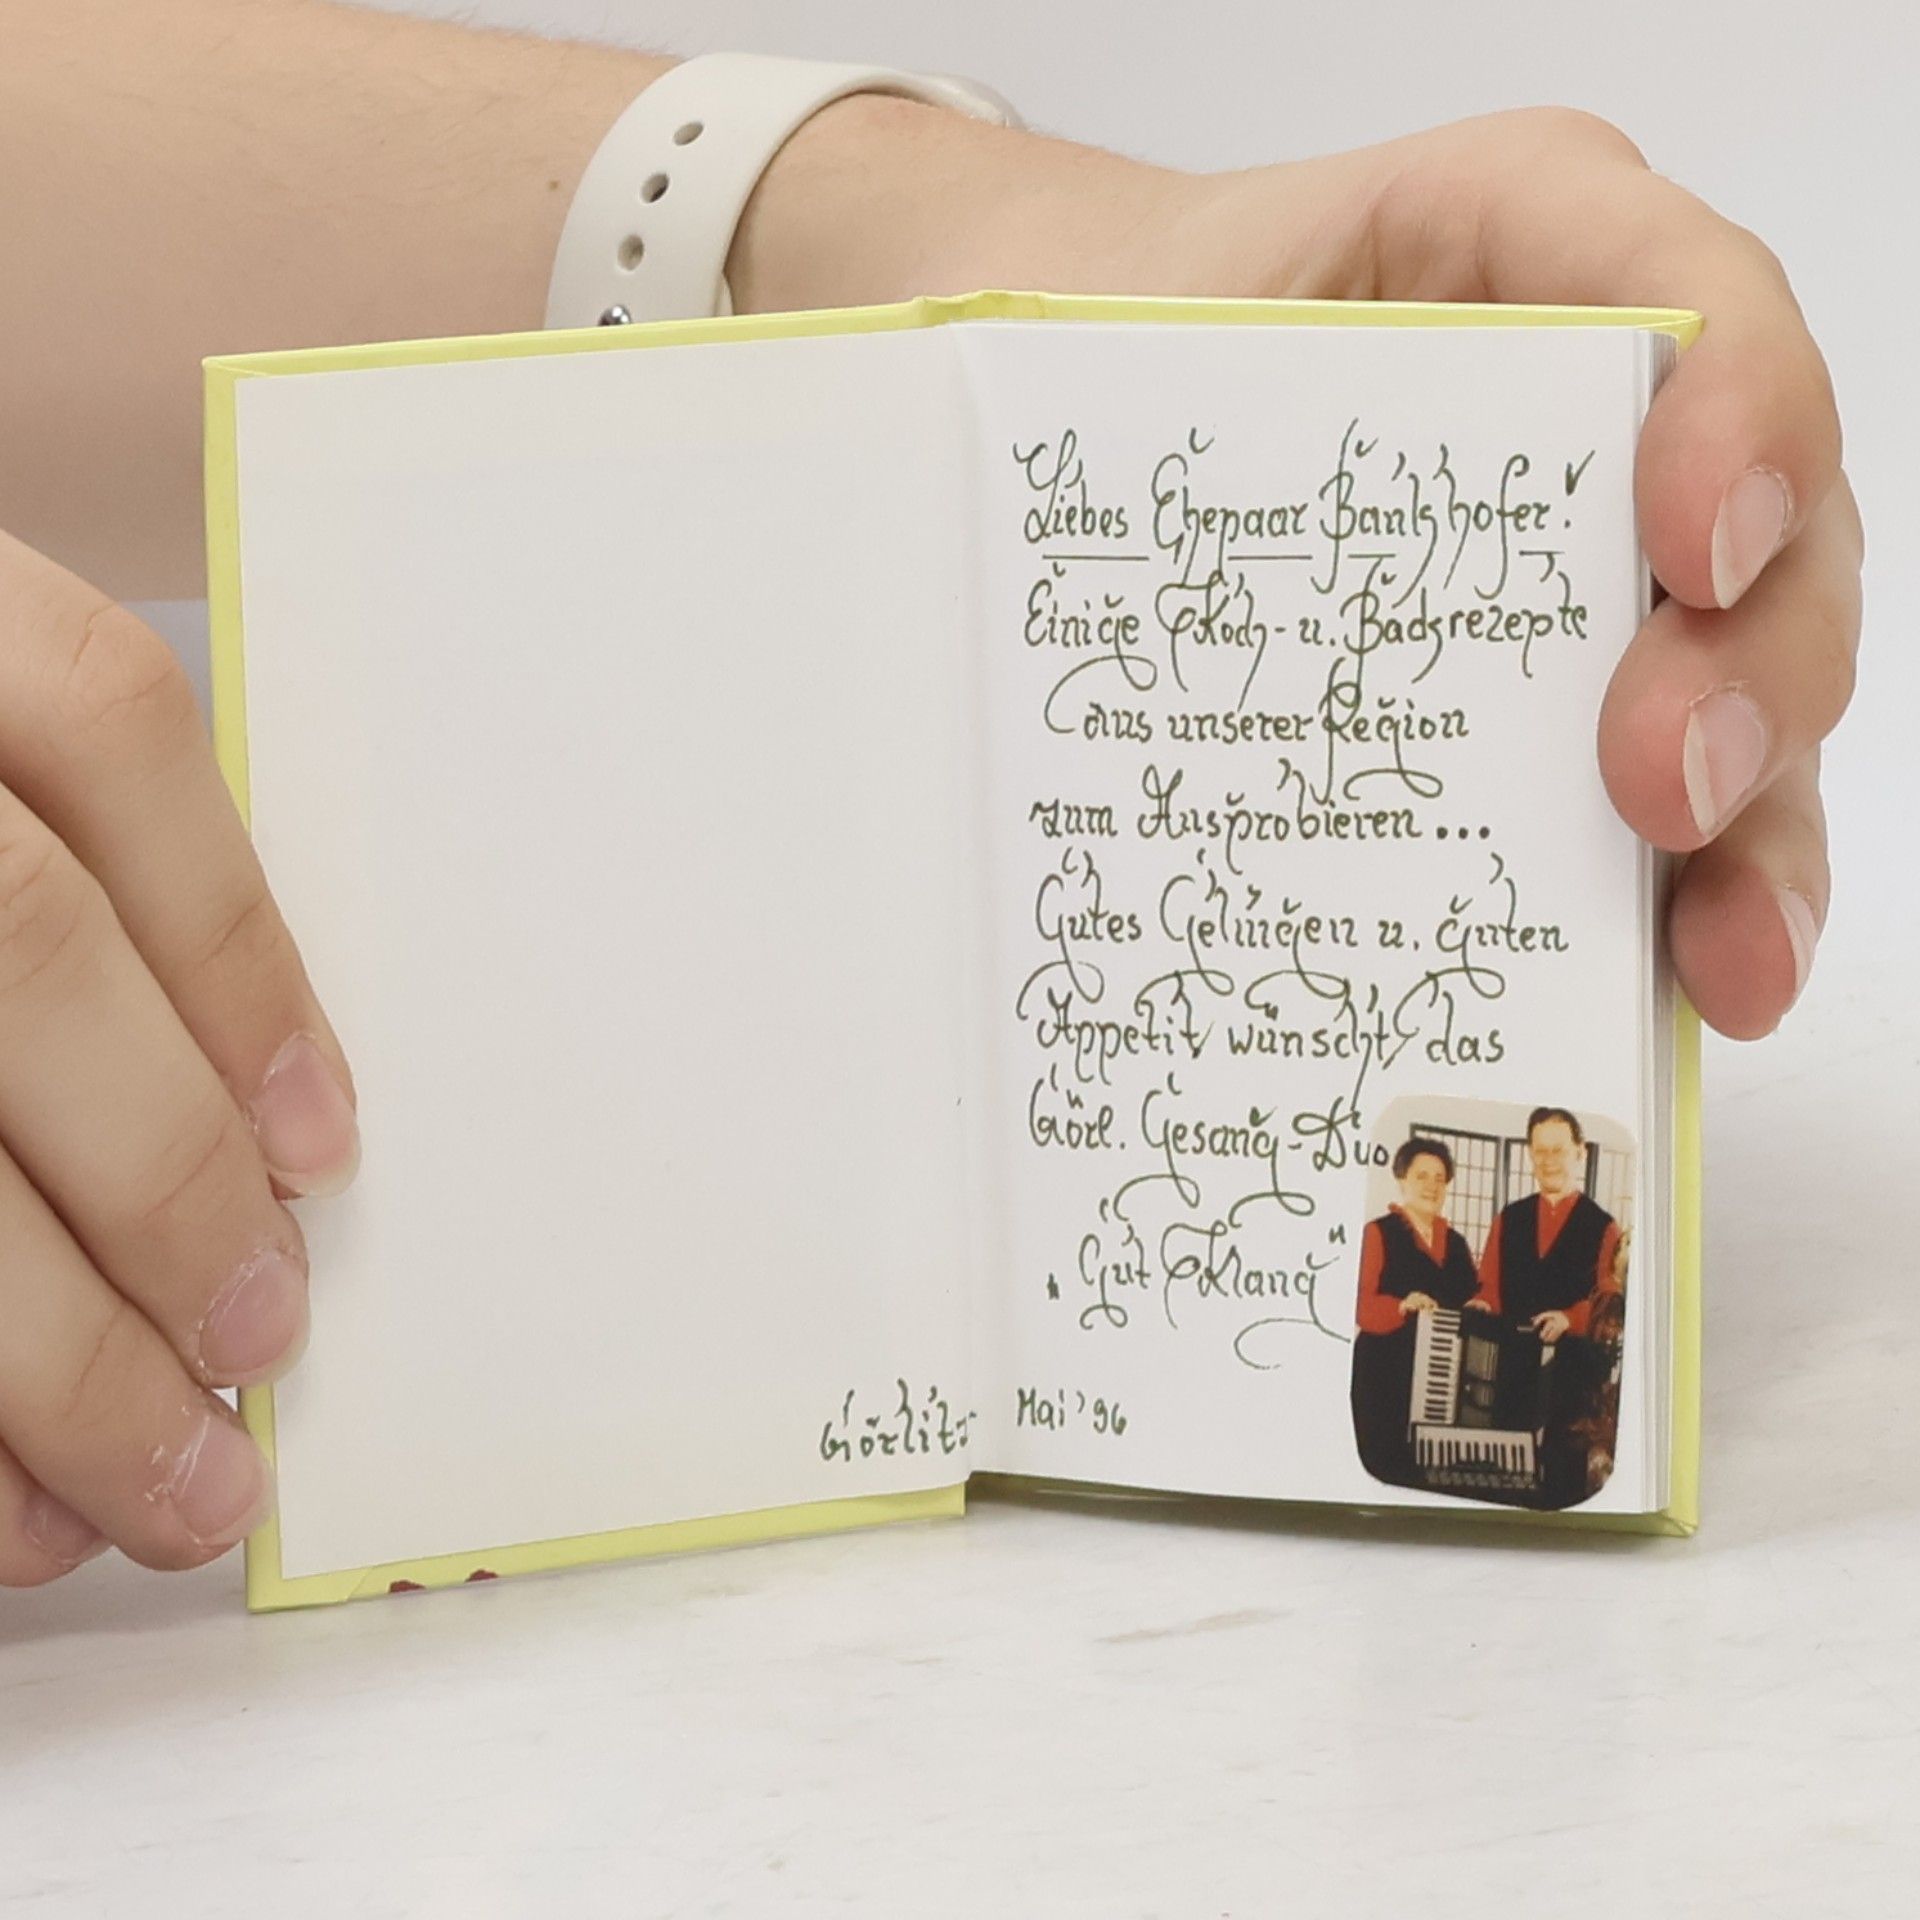 Liebes Ehepaar Bankhofer!
Einige Koch- u. Backrezepte
aus unserer Region
zum Ausprobieren...
Gutes Gelingen u. guten
Appetit wünscht das
Görl. Gesang-Duo
"Gut Klang"
Görlitz Mai '96